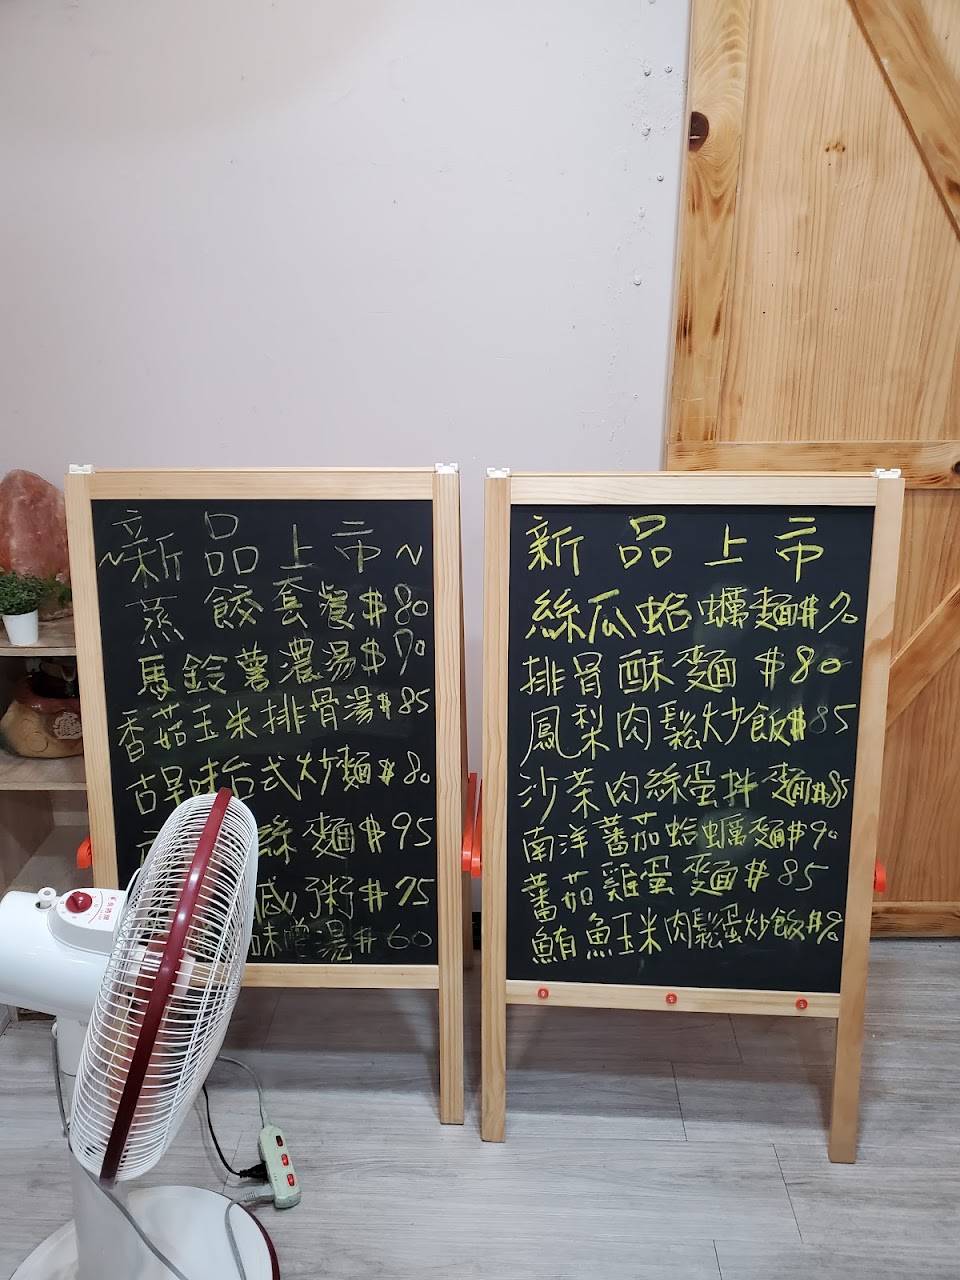 ~新品上市~
蒸餃套餐$80
馬鈴薯濃湯$70
香菇玉米排骨湯$85
古早味台式炒麵$80
絲麵$95
鹹粥$75
味噌湯$60
新品上市
絲瓜蛤蠣麵$90
排骨酥麵$80
鳳梨肉鬆炒飯$85
沙茶肉絲蛋拌麵$85
南洋蕃茄蛤蠣麵$90
蕃茄雞蛋麵$85
鮪魚玉米肉鬆蛋炒飯$90